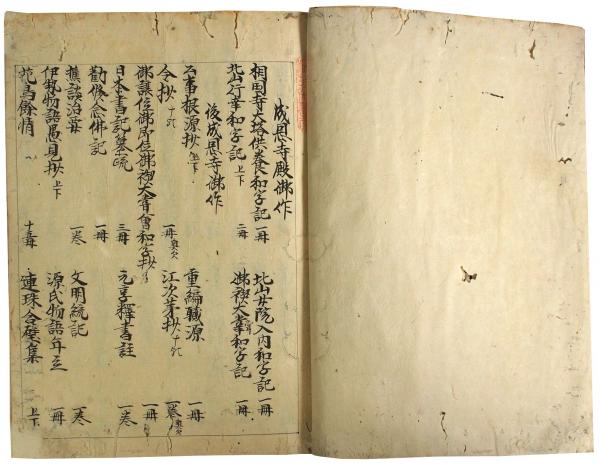 成恩寺殿御作
相国寺大塔供養和字記 一冊 北山女院入内和字記 一冊
北山行幸和字記 上下 二冊 御禊大嘗和字記 一冊
後成恩寺御作
公事根源抄 上下 重編職源 一冊
令抄 一冊 江次第抄 一巻
御譲位御即位御禊大嘗會和字抄
日本書記纂疏 三冊 元亨釋書註 一巻
勧修念佛記 一冊
樵談治要 一巻 文明統記 一巻
伊勢物語愚見抄 上下 源氏物語年立 一冊
花鳥餘情 十五冊 連珠合璧集 上下